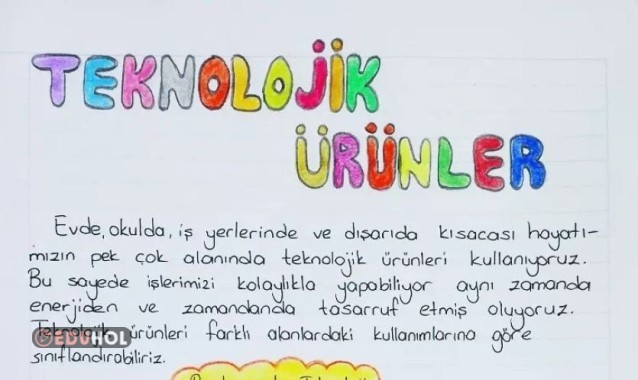 TEKNOLOJİK
ÜRÜNLER
Evde, okulda, iş yerlerinde ve dışarıda kısacası hayatı-
mızın pek çok alanında teknolojik ürünleri kullanıyoruz.
Bu sayede işlerimizi kolaylıkla yapabiliyor aynı zamanda
enerjiden ve zamandanda tasarruf etmiş oluyoruz.
Teknolojik ürünleri farklı alanlardaki kullanımlarına göre
EDUHOL
sınıflandırabiliriz.